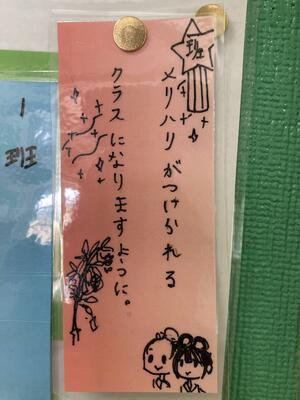 1
班
班
メリハリがつけられる
クラスになりますように。